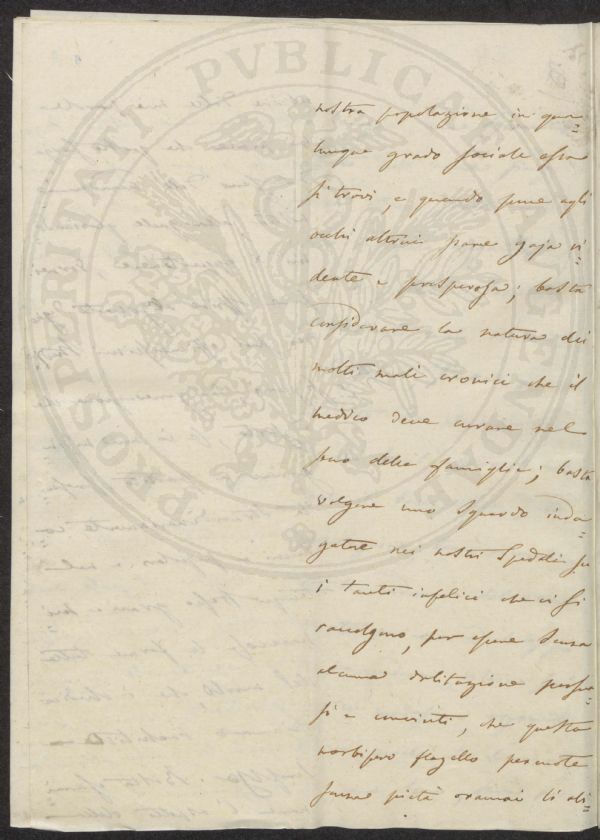 PROSPERITATI PVBLICAE AVGENDAE
nostra popolazione in qua=
lunque grado sociale essa
si trovi, e quando pure agli
occhi altrui pare gaja ri=
dente e prosperosa; basta
considerare la natura dei
molti mali cronici che il
medico deve curare nel
seno delle famiglie; basta
volgere uno sguardo inda=
gatore nei nostri Spedali su
i tanti infelici che ci si
raccolgono, per essere senza
alcuna esitazione persua=
si e convinti, che questo
morbifero flagello percuote
senza pietà oramai li abi=